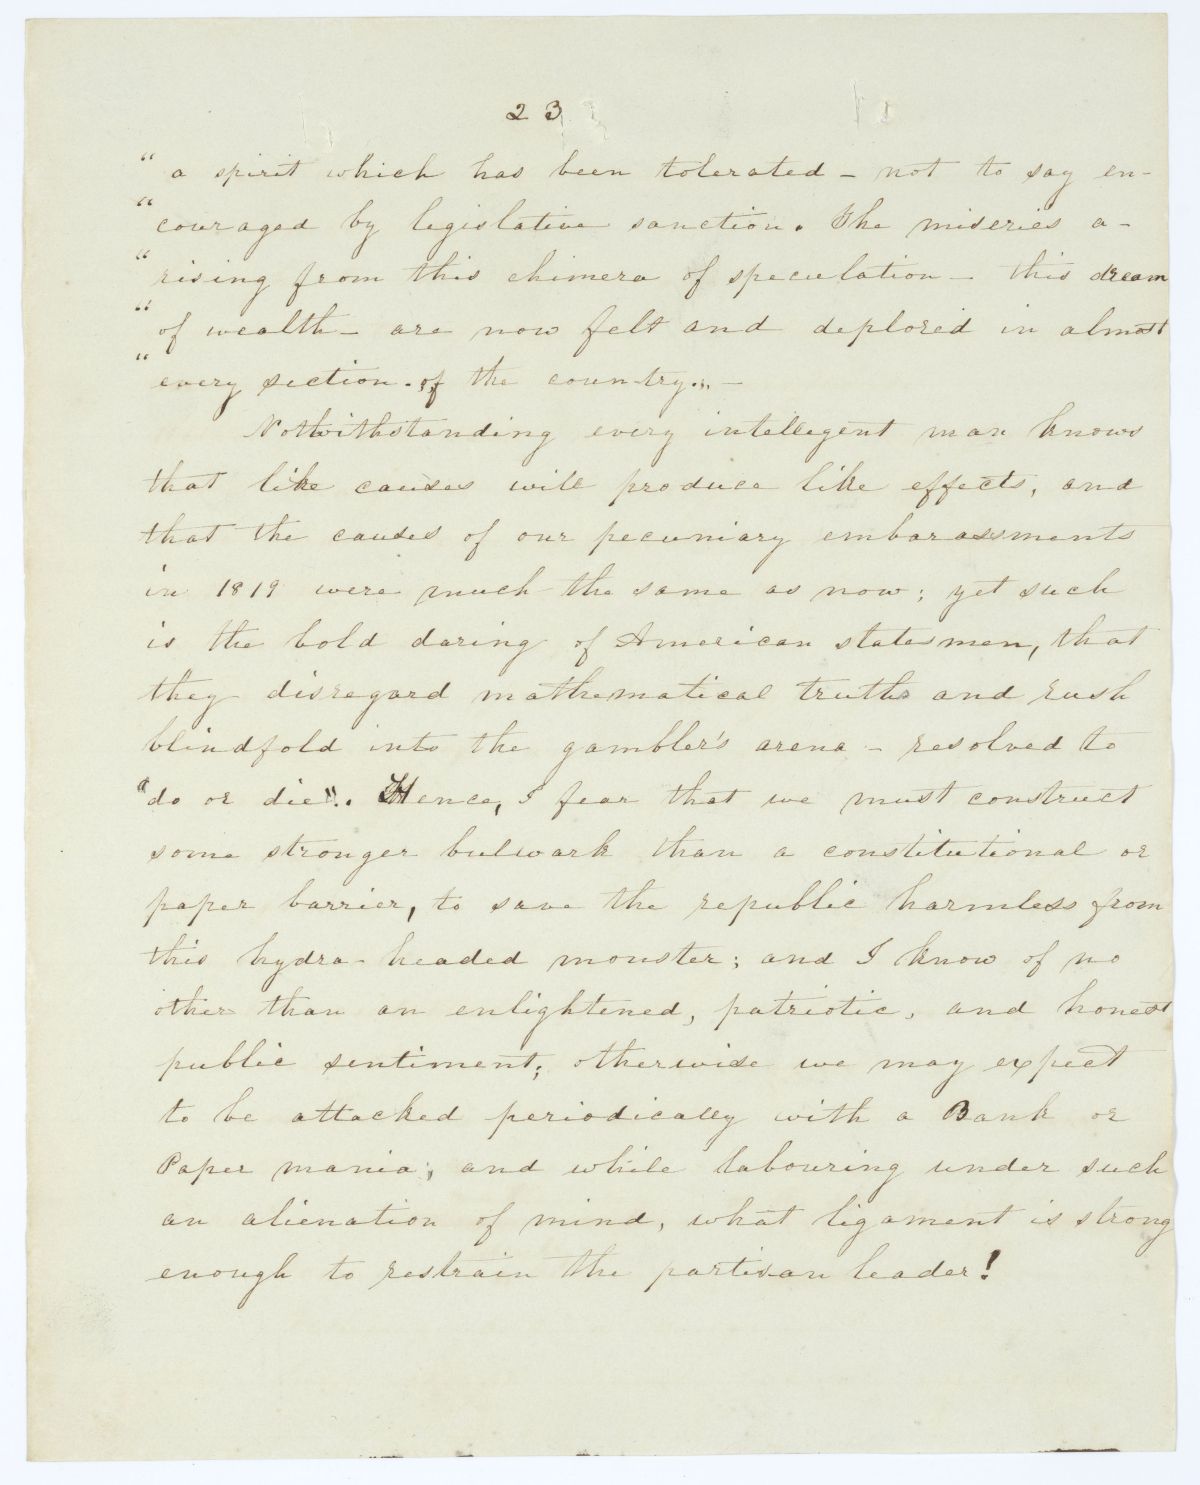 23
" a spirit which has been tolerated – not to say en-
" couraged by legislative sanction. The miseries a-
" rising from this chimera of speculation – this dream
" of wealth – are now felt and deplored in almost
" every section of the country." –
Notwithstanding every intellegent man knows
that like causes will produce like effects, and
that the causes of our pecuniary embarassments
in 1819 were much the same as now; yet such
is the bold daring of American statesmen, that
they disregard mathematical truths and rush
blindfold into the gambler's arena – resolved to
"do or die". Hence, I fear that we must construct
some stronger bulwark than a constitutional or
paper barrier, to save the republic harmless from
this hydra-headed monster; and I know of no
other than an enlightened, patriotic, and honest
public sentiment; otherwise we may expect
to be attacked periodically with a Bank or
Paper mania; and while labouring under such
an alienation of mind, what ligament is strong
enough to restrain the partisan leader!